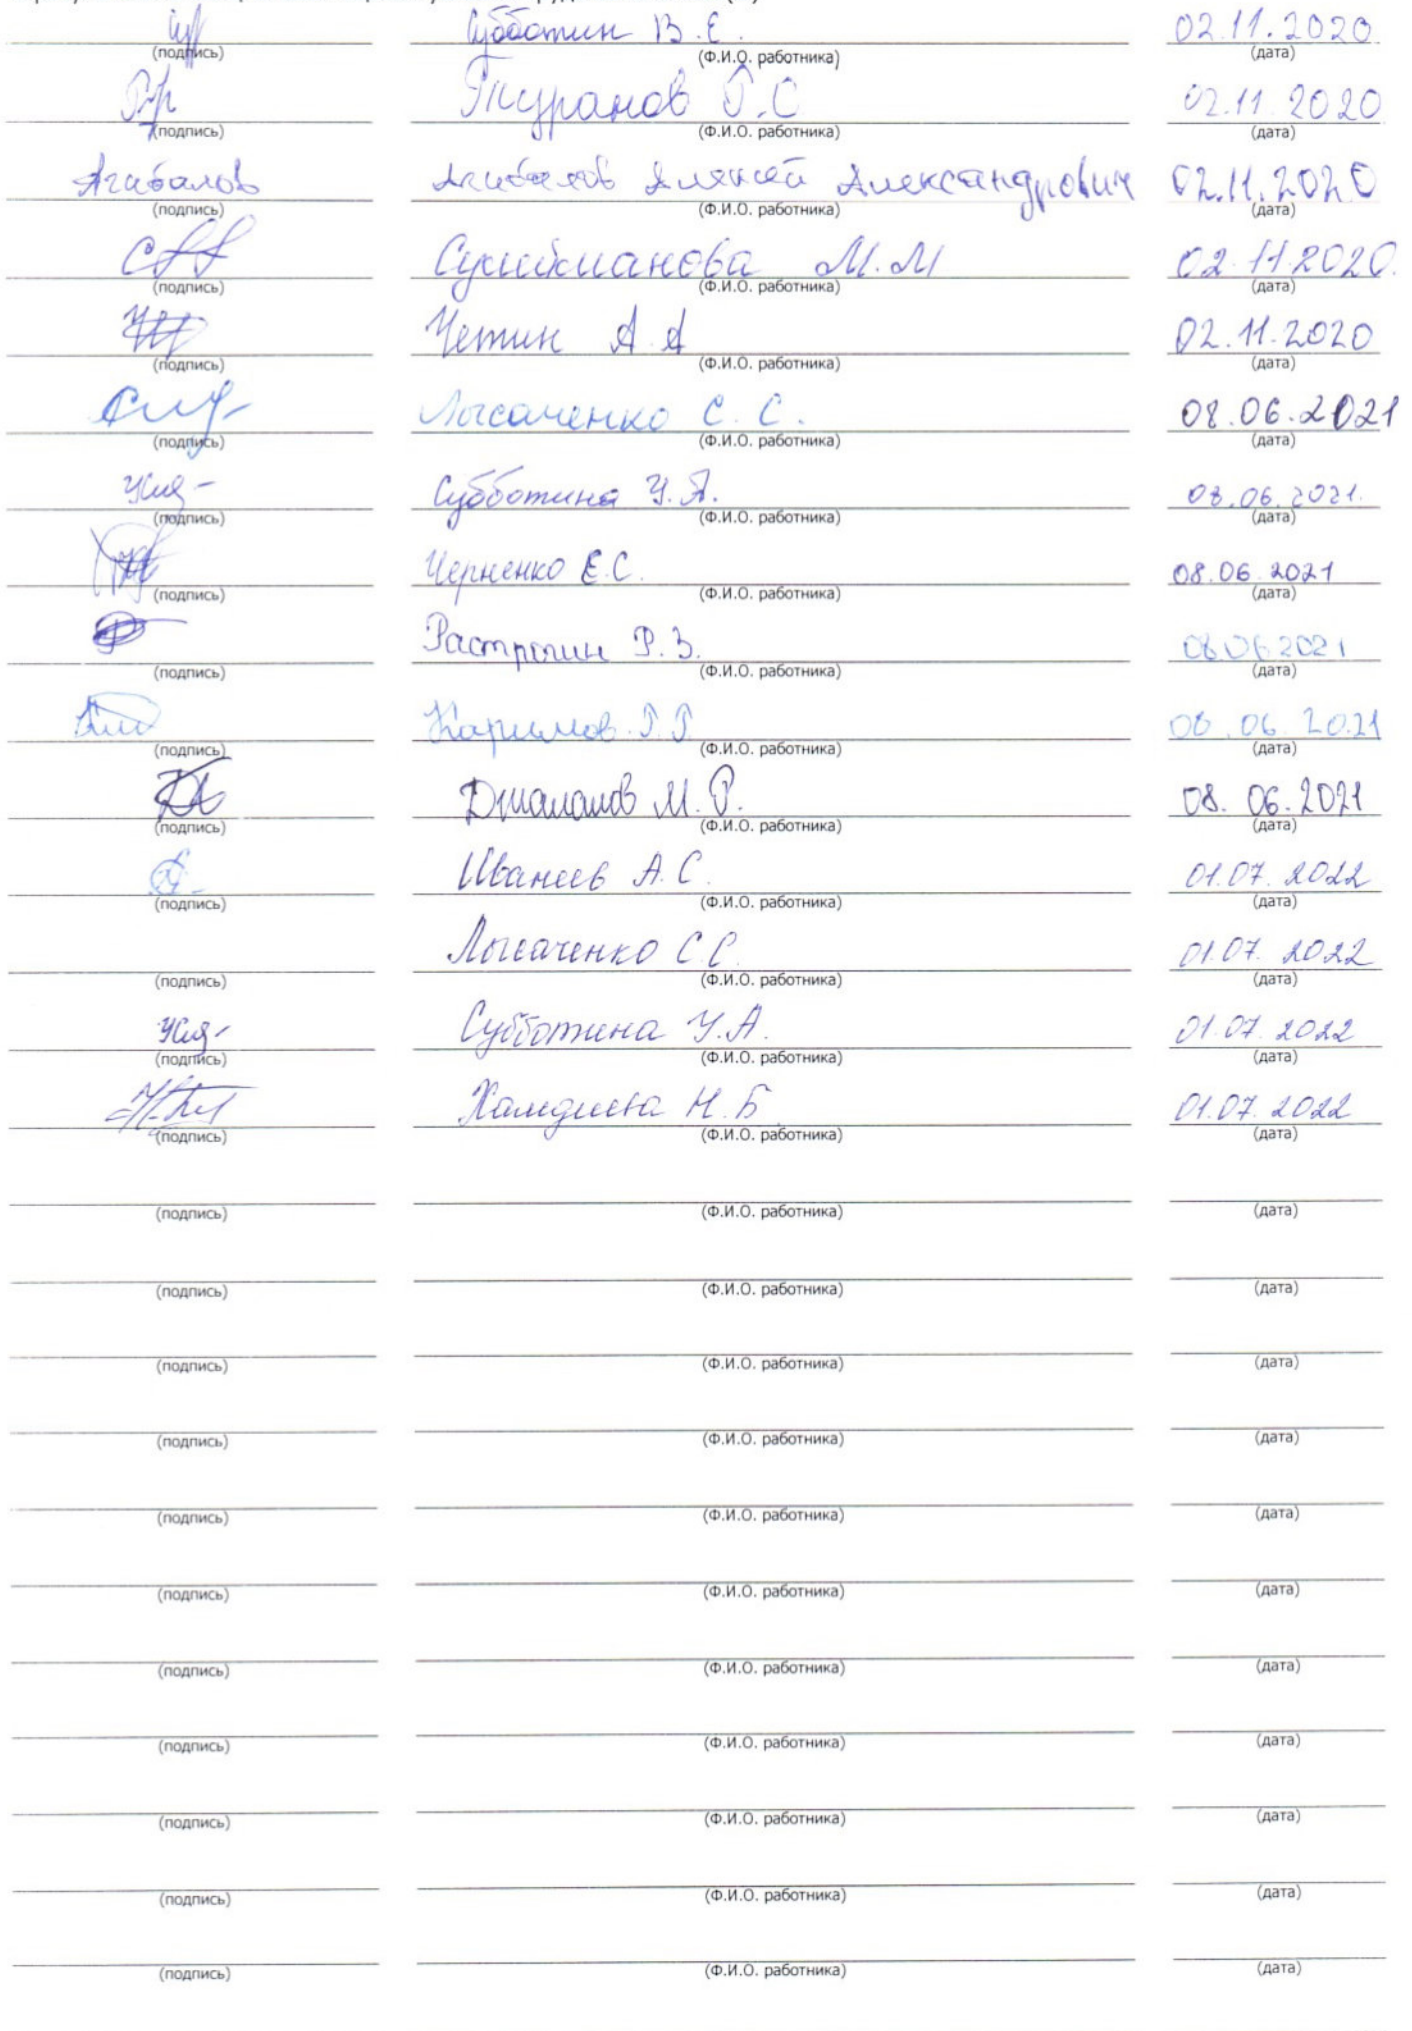 Субботин В.Е. 02.11.2020
(подпись) (Ф.И.О. работника) (дата)
Туранов Г.С 02.11.2020
(подпись) (Ф.И.О. работника) (дата)
Агибалов Агибалов Алексей Александрович 02.11.2020
(подпись) (Ф.И.О. работника) (дата)
Сулейманова М.М 02.11.2020.
(подпись) (Ф.И.О. работника) (дата)
Четин А.А 02.11.2020
(подпись) (Ф.И.О. работника) (дата)
Лысаченко С.С. 08.06.2021
(подпись) (Ф.И.О. работника) (дата)
Субботина У.А. 08.06.2021.
(подпись) (Ф.И.О. работника) (дата)
Черненко Е.С. 08.06.2021
(подпись) (Ф.И.О. работника) (дата)
Растропин Р.В. 08.06.2021
(подпись) (Ф.И.О. работника) (дата)
Каримов Г.Г. 08.06.2021
(подпись) (Ф.И.О. работника) (дата)
Джалалов М.Р. 08.06.2021
(подпись) (Ф.И.О. работника) (дата)
Иванеев А.С. 01.07.2022
(подпись) (Ф.И.О. работника) (дата)
Лысаченко С.С. 01.07.2022
(подпись) (Ф.И.О. работника) (дата)
Субботина У.А. 01.07.2022
(подпись) (Ф.И.О. работника) (дата)
Хамдиева Н.Б 01.07.2022
(подпись) (Ф.И.О. работника) (дата)
(подпись) (Ф.И.О. работника) (дата)
(подпись) (Ф.И.О. работника) (дата)
(подпись) (Ф.И.О. работника) (дата)
(подпись) (Ф.И.О. работника) (дата)
(подпись) (Ф.И.О. работника) (дата)
(подпись) (Ф.И.О. работника) (дата)
(подпись) (Ф.И.О. работника) (дата)
(подпись) (Ф.И.О. работника) (дата)
(подпись) (Ф.И.О. работника) (дата)
(подпись) (Ф.И.О. работника) (дата)
(подпись) (Ф.И.О. работника) (дата)